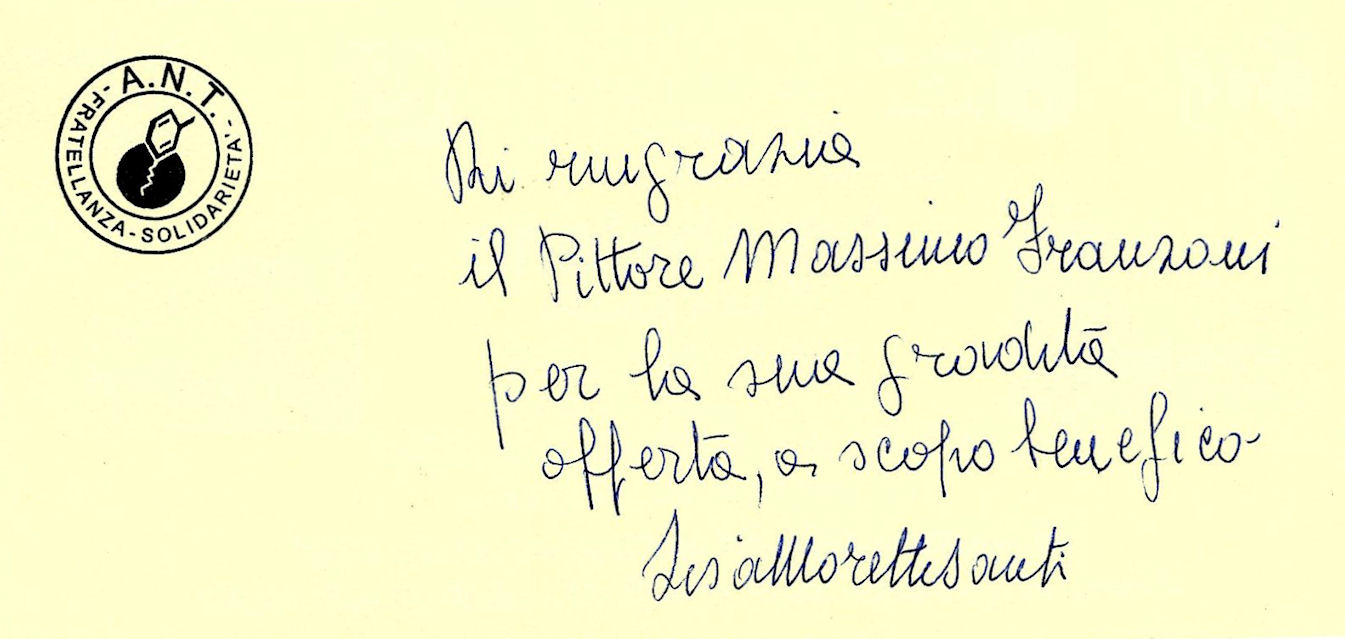 A.N.T.
-FRATELLANZA-SOLIDARIETA'-
ringrazia
il Pittore Massimo Franzoni
per la sua gradita
offerta, a scopo benefico